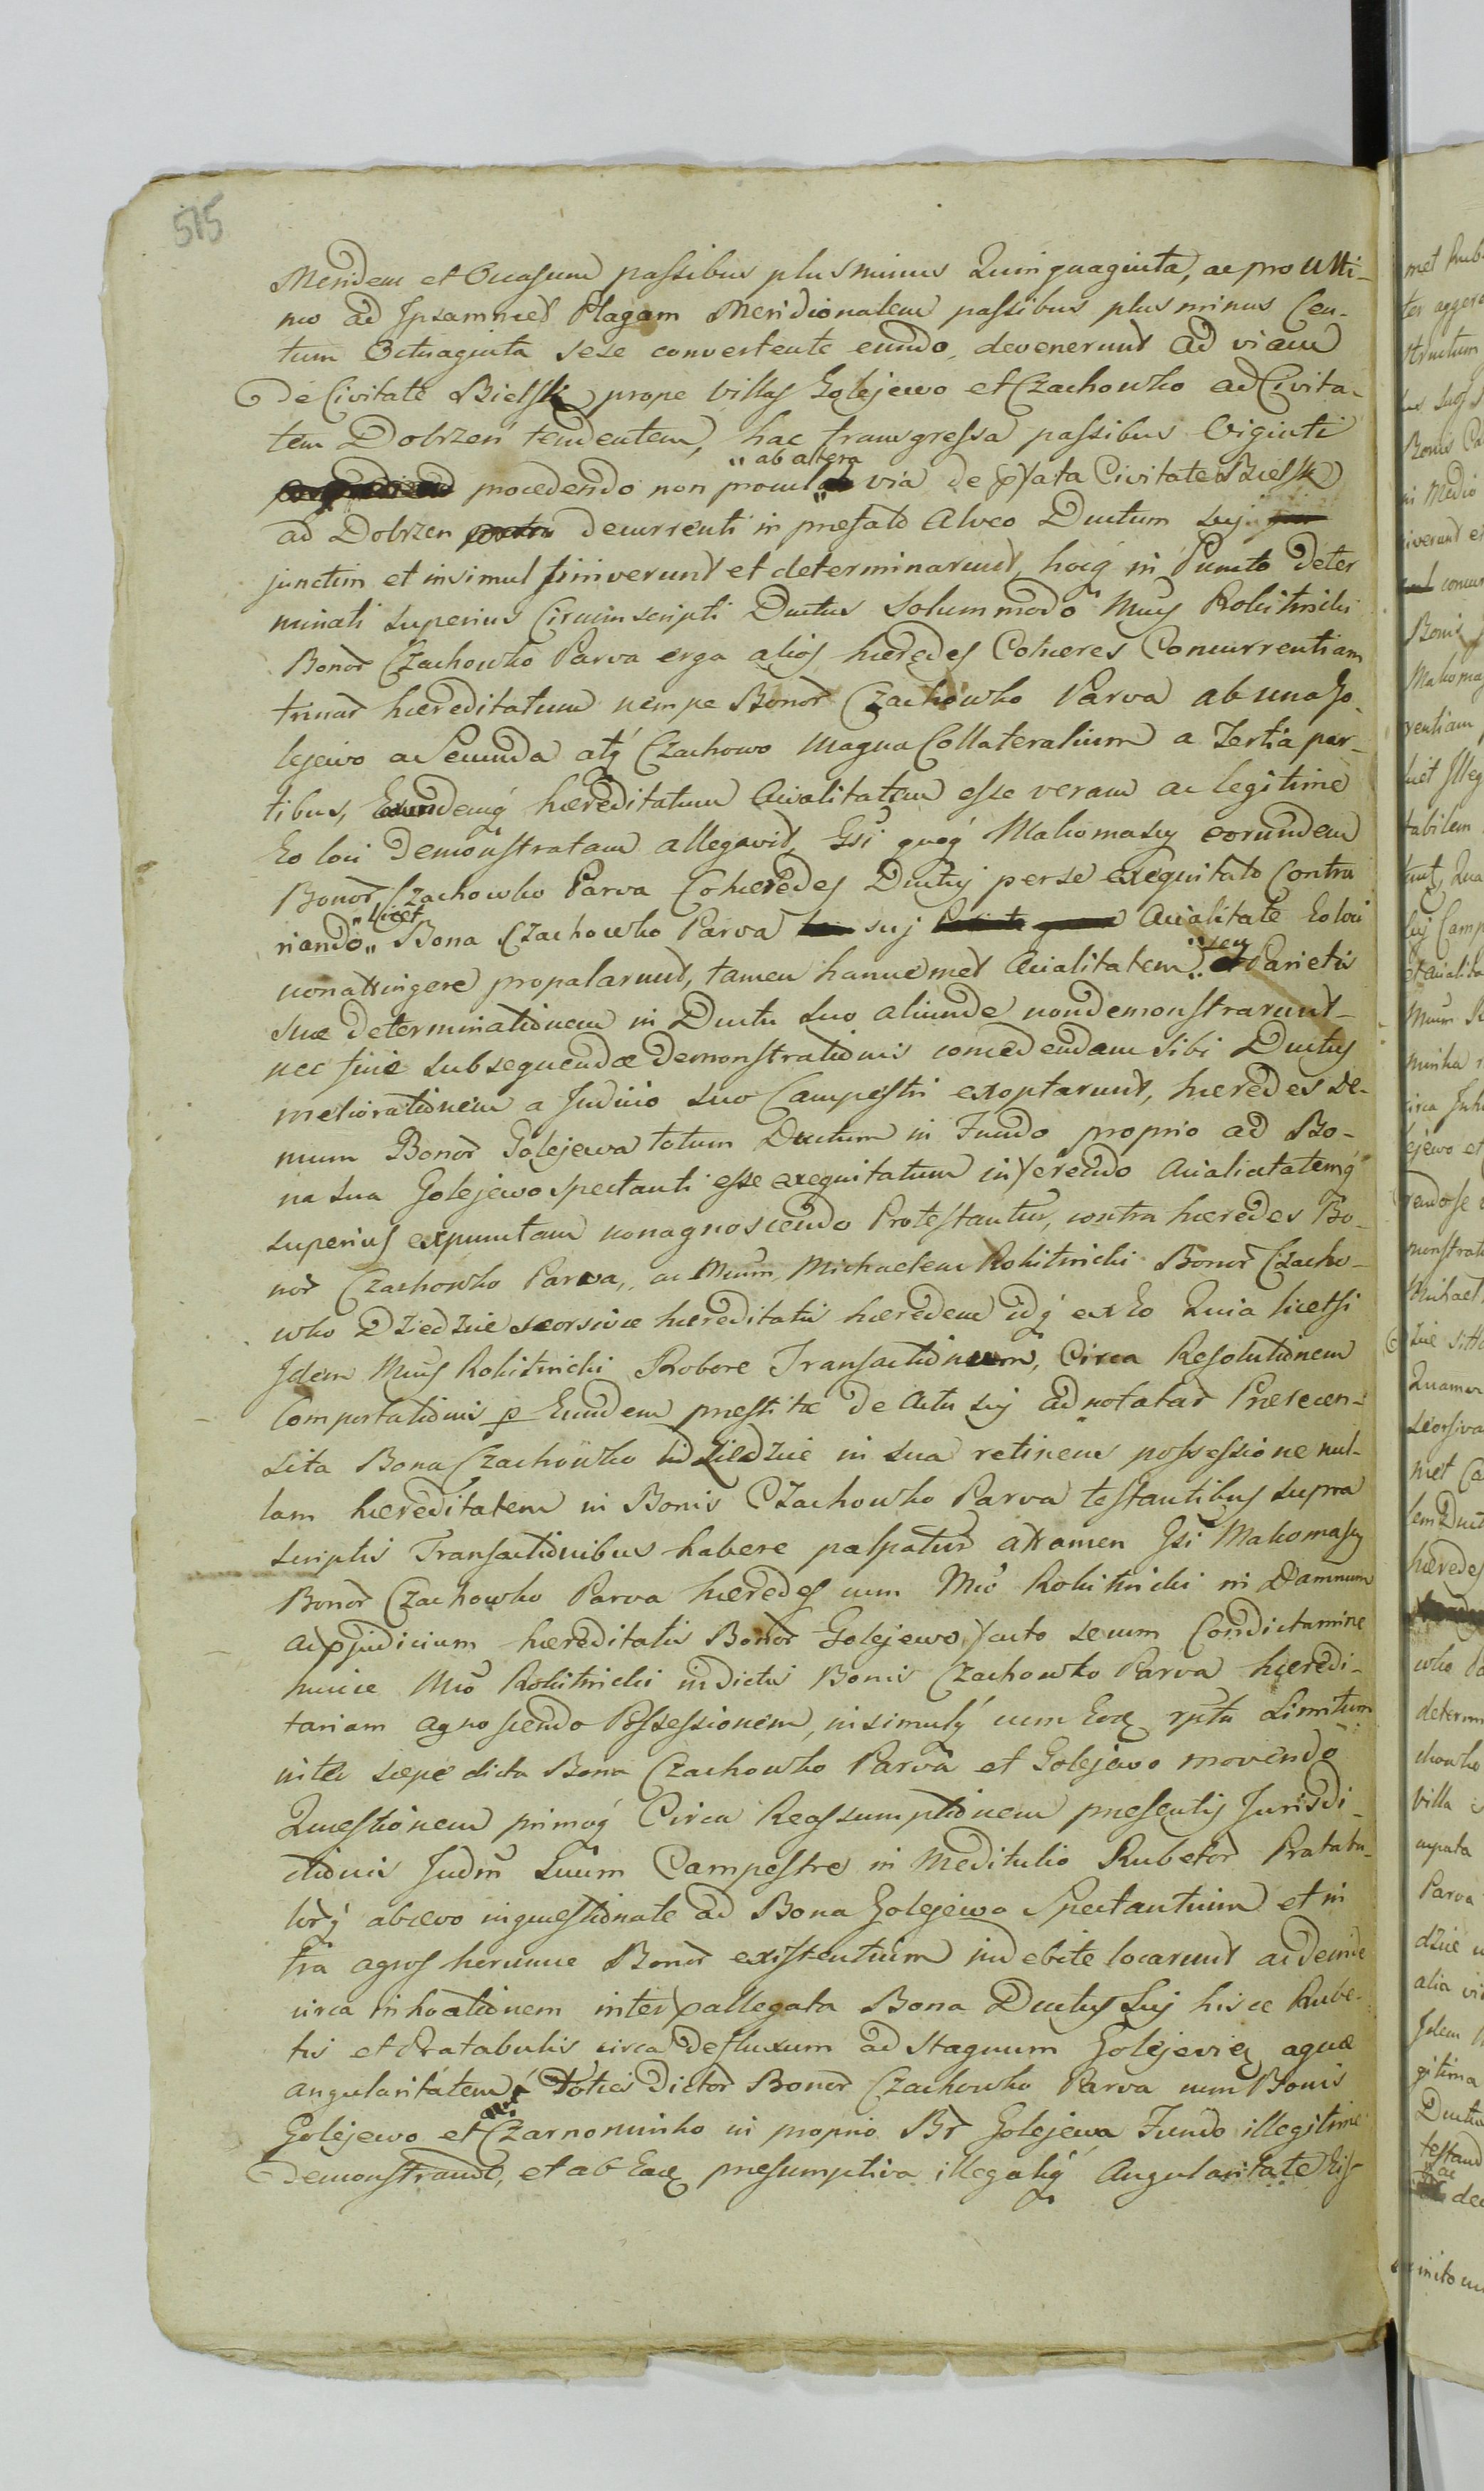 515
Meridem et Occasum passibus plus minus Quinquaginta, ac pro Ulti-
mo ad Ipsammet Plagam Meridionalem passibus plus minus Cen-
tum Octuaginta sese convertente eundo, devenerunt ad viam
de Civitate Bielsk prope villas Golejewo et Czachowko ad Civita-
tem Dobrzeń tendentem, hac transgressa passibus Viginti
procedendo non procul „ab altera„ via de pfata Civitate Bielsk
ad Dobrzen decurrenti in præfato Alveo Ductum suj
junctim et insimul finiverunt et determinarunt, hocq in Puncto Deter
minati superius Circumscripti Ductus Solummodo Mucus Rokitnicki
Bonor Czachowko Parva erga alios hæredes Cohæres Concurrentiam
trinar hæreditatum nempe Bonor Czachowko Parva ab una Go-
lejewo a Secunda atq Czachowo Magna Collateralium a Tertia par-
tibus, Earundemq hæreditatum Acialitatem esse veram ac legitime
Eo loci demonstratam allegavit, Gsi quoq Makomascy eorundem
Bonor Czachowko Parva Cohæredes Ductuj per se exequitato Contra
riando „licet„ Bona Czachowko Parva suj Acialitate Eo loci
non attingere propalarunt, tamen hancmet Acialitatem „seu„ Parietis
suæ determinationem in Ductu suo aliunde non demonstrarunt
nec sine subsequendæ Demonstrationis concedendam sibi Ductus
meliorationem a Judicio suo Campestri exoptarunt, hæredes de-
mum Bonor Golejewa totum Ductum in Fundo proprio ad Bo-
na sua Golejewo spectanti esse exequitatum inferendo Acialitatemq
superius expunctam non agnoscendo Protestantur, contra hæredes Bo-
nor Czachowko Parva, ac Mucum Michaelem Rokitnicki Bonor Czacho-
wko Dziedzice seorsivæ hæreditatis hæredem idq ex Eo Quia licetsi
Idem Mucus Rokitnicki Robore Transactionum, Circa Resolutionem
Comportationis p Eundem præstitæ de Actu suj adnotatar Præcen-
sita Bona Czachowko Dziedzice in sua retinens possessione nul-
lam hæreditatem in Bonis Czachowko Parva testantibus supra
scriptis Transactionibus habere palpatur attamen Gsi Makomascy
Bonor Czachowko Parva hæredes cum Mco Rokitnicki in Damnum
ac pjudicium hæreditatis Bonor Golejewo, facto secum Condictamine
huicce Mco Rokitnicki in dictis Bonis Czachowko Parva hæredi-
tariam agnoscendo Possessionem, insimulq cum Eoq rptu Limitum
inter sæpe dicta Bona Czachowko Parva et Golejewo movendo
Quæstionem primoq Circa Reassumptionem præsentis Jurisdi-
ctionis Judm Suum Campestre in Meditulio Rubetor Pratatu-
lorq ab ævo inquestionate ad Bona Golejewo Spectantium et in
tra agros horumce Bonor existentium indebite locarunt ac deinde
circa inhoationem inter pallegata Bona Ductus Suj hisce Rube-
tis et Pratabulis circa Defluxum ad Stagnum Golejevieq aquæ
angularitatem Toties Dictor Bonor Czachowko Parva cum Bonis
Golejewo et Czarnominko in proprio Br Golejewa Fundo illegitime
Demonstrando, et ab Eaq præsumptiva illegaliq Angularitate Eis